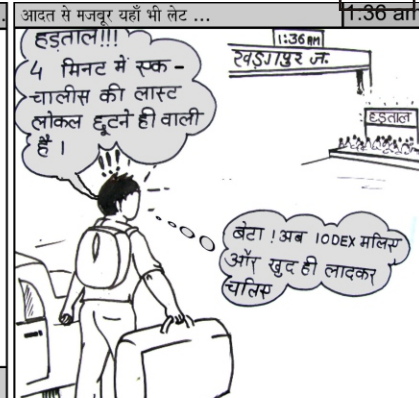 आदत से मजबूर यहाँ भी लेट ...
1:36 am
हड़ताल!!!
4 मिनट में एक-
चालीस की लास्ट
लोकल छूटने ही वाली
है।
1:36 AM
खड़गपुर जं.
हड़ताल
बेटा! अब IODEX मलिए
और खुद ही लादकर
चलिए